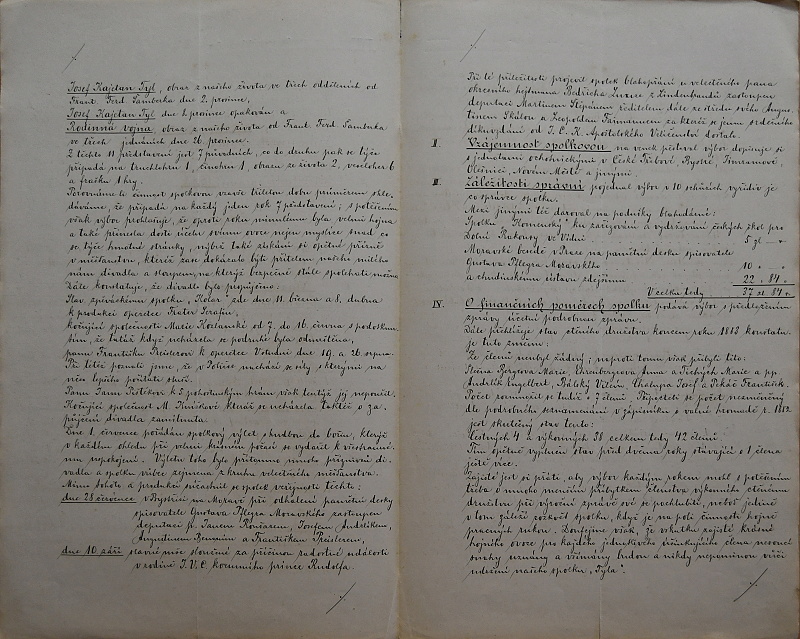 Josef Kajetan Tyl, obraz z našeho života ve třech odděleních od
Frant. Ferd. Šamberka dne 2. prosince,
Josef Kajetan Tyl dne prosince opakován a
Rodinná vojna, obraz z našeho života od Frant. Ferd. Šamberka
ve třech jednáních dne 26. prosince.
Z těchto 11 představení jest 7 původních, co do druhu pak se týče
připadá na truchlohru 1, činohru 1, obrazu ze života 2, veselohor 6
a frašku 1 hry.
Porovnáme-li činnost spolkovou vzavše průměrem skle-
dáváme, že připadá na každý jeden rok 7 představení; s potěšením
však výbor prohlašuje, že oproti roku minulému byla velmi hojna
a také přinesla dosti ovoce nejen myslíce snad co
se týče hmotné stránky, nýbrž také získání si opětné přízně
v měšťanstvu, kteréž zase dokázalo býti přítelem našeho milého
nám divadla a sloupem, na kterýž bezpečně stále spoléhati možno
Dále konstatuje, že divadlo bylo propůjčeno:
Slav. zpěváckému spolku "Kolár" zde dne 11. března a 8. dubna
k produkci operetce Frater Serafin,
Kočující společnosti Marie od 7. do 16. června s podotknu-
tím, že tatáž když ucházela se podruhé byla odmítnuta,
panu Františku Preislerovi k operetce dne 19. a 26. srpna.
Při též poznali jsme, že v Poličce nachází se síly s kterými na
něco lepšího pomýšleti sluší.
Panu k 3 pohostinským hrám však tentýž jej nepoužil.
Kočující společnost M. kteráž se ucházela taktéž o za-
půjčení divadla zamítnuta.
Dne 1. července pořádán spolkový výlet s hudbou do boru, kterýž
v každém ohledu při velmi krásném počasí se vydařil k všestranné-
mu uspokojení. Výletu toho bylo přítomno mnoho příznivců di-
vadla a spolku vůbec zejména z kruhu velectěného měšťanstva.
Mimo tohoto a produkcí súčastnil se spolek veřejnosti těchto:
dne 28 července v Bystřici na Moravě při odhalení pamětní desky
spisovatele Gustava Pflegra Moravského zastoupen
deputací pp. Janem Josefem Andrlíkem,
Augustinem a Františkem Preislerem,
dne 10. září slavil naše sloučení za příčinou radostné události
v rodině J. V. C. korunního prince Rudolfa.
Při té příležitosti projevil spolek blahopřání u velectěného pana
okresního hejtmana Bedřicha z zastoupen
deputací Martinem Štěpánem ředitelem dále ze středu svého Augus-
tinem Skálou a Leopoldem za kteréž se jemu srdečného
díkuvzdání od J. C. K. Apoštolského Veličenství dostalo.
I. Vzájemnost spolkovou na venek pěstoval výbor dopisuje si
s jednotami ochotnickými v České Třebové, Bystré, Jimramově,
Olešnici, Novém Městě a jinými.
II. Záležitosti správní pojednal výbor v 10 schůzích vyřídiv je
co správce spolku.
Mezi jinými též daroval na podniky blahodárné:
Spolku "Komenský" ku zařizování a vydržování českých škol pro
dolní Rakousy ve Vídni 5 zl –
Moravské besedě v Praze na pamětní desku spisovatele
Gustava Pflegra Moravského 10 " "
a chudinskému ústavu zdejšímu 22 " 84 "
V celku tedy 37 zl 84 kr.
IV. O finančních poměrech spolku podává výbor s předložením
zprávy účetní podrobnou zprávu.
Dále přehlížeje stav ctěného družstva koncem roku 1883 konstatu-
je tuto změnu:
Ze členů neubyl žádný; naproti tomu však přibyli tito:
Slečna Marie, Anna a Marie a pp.
Andrlík Engelbert, Vilém, Chalupa Josef a Pekař František.
Počet rozmnožil se tudíž o 7 členů. Připočteti se počet nezměněný
dle podrobného seznamenání v zápisníku s valné hromadě r. 1882
jest skutečný stav tento:
Čestných 4 a výkonných 38 celkem tedy 42 členů.
Tím opětně vyplněn stav před dvěma roky stávající o 1 člena
ještě více.
Zajisté jest si přáti, aby výbor každým rokem mohl s potěšením
třeba o mnoho menším přibytkem členstva výkonného ctěnému
družstvu při výroční zprávě své se pochlubiti, neboť jedině
v tom záleží rozkvět spolku, když je na poli činnosti hojně
pracovných rukou. Doufejme však, že vskutku zajisté krásné
hojného ovoce pro každého jednotlivého účinkujícího člena nesoucí
snahy uznány a všímány budou a nikdy nepominou vůči
udržení našeho spolku "Tyla".